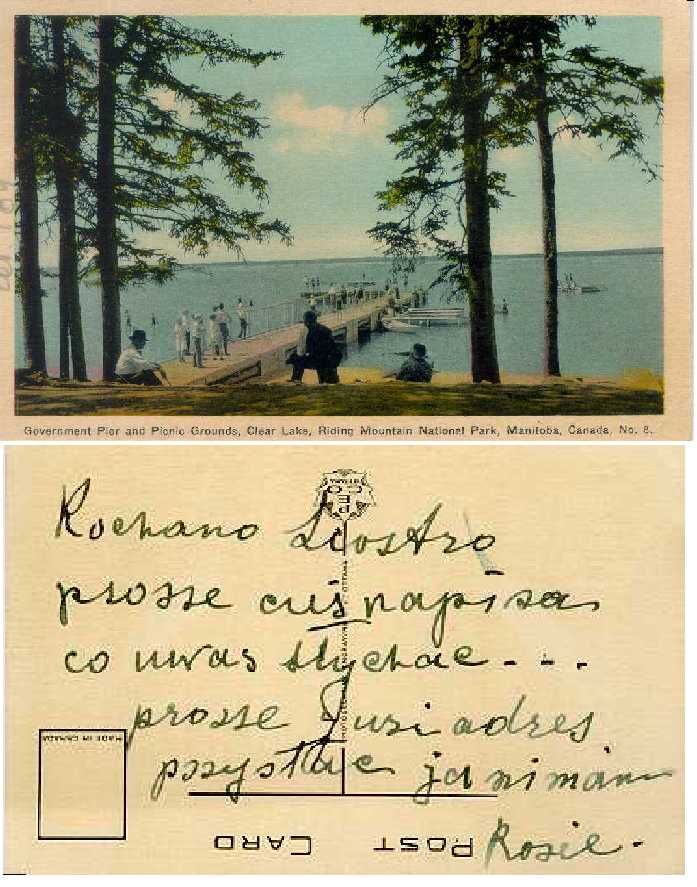 Government Pier and Picnic Grounds, Clear Lake, Riding Mountain National Park, Manitoba, Canada, No. 8.
Kochano Siostro
prosse cuś napisa
co uwas slychac - - -
prosse Jusi adres
pszystac ja nimam
Rosie -
MADE IN CANADA
POST CARD
PECO